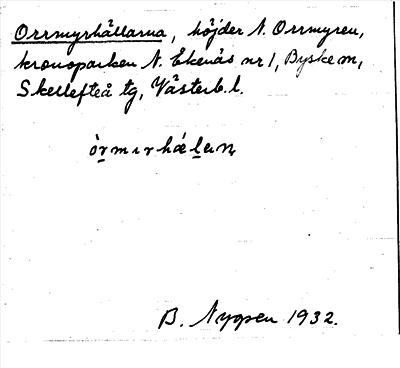 Orrmyrhällarna, höjder N. Orrmyren,
kronoparken N. Ekenäs nr 1, Byske sn,
Skellefteå tg, Västerb. l.
B. Nygren 1932.